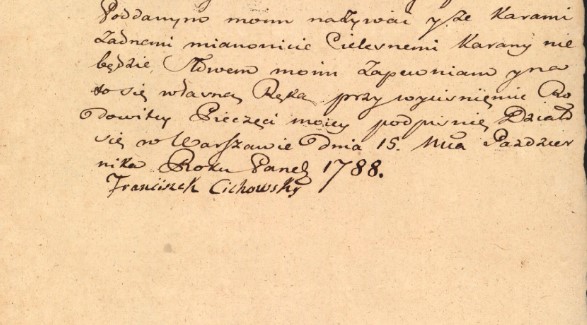 Poddanyno moim nazywać y że Karami
żadnemi mianowicie Cielesnemi Karany nie
będzie Słowem moim zapewniam y na
to się własną Ręką przy wyciśnieniu Ro
dowitey Pieczęci moiey podpisuię Działo
się w Warszawie Dnia 15. Mca Paździer
nika Roku Pansk 1788.
Franciszek Cichowsky